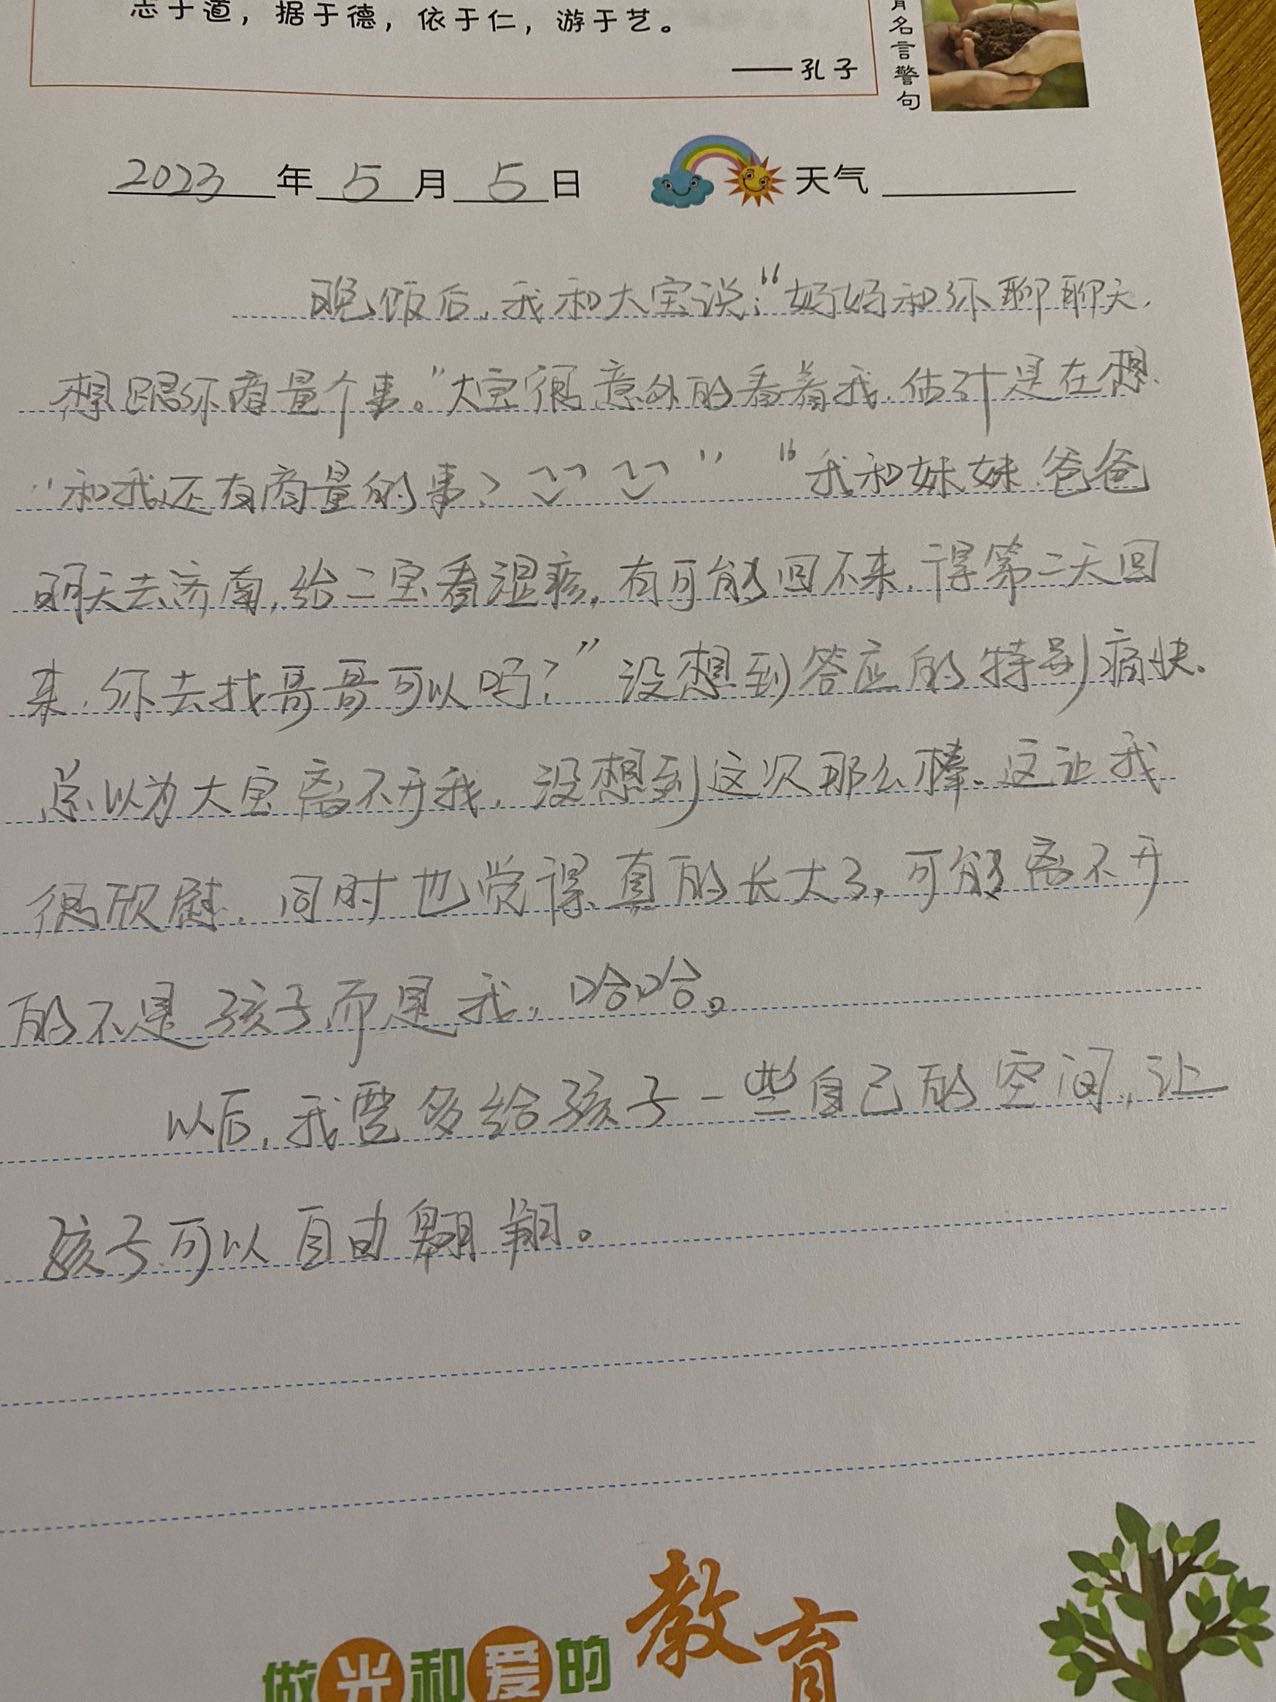 志于道，据于德，依于仁，游于艺。
——孔子
育名言警句
2023年5月5日 天气
晚饭后，我和大宝说：“妈妈和你聊聊天，
想跟你商量个事。”大宝很意外的看着我，估计是在想，
“和我还有商量的事？”“我和妹妹、爸爸
明天去济南，给二宝看湿疹，有可能回不来，得第二天回
来，你去找哥哥可以吗？”没想到答应的特别痛快、
总以为大宝离不开我，没想到这次那么棒、这让我
很欣慰，同时也觉得真的长大了，可能离不开
的不是孩子而是我，哈哈。
以后，我要多给孩子一些自己的空间，让
孩子可以自由翱翔。
做光和爱的教育